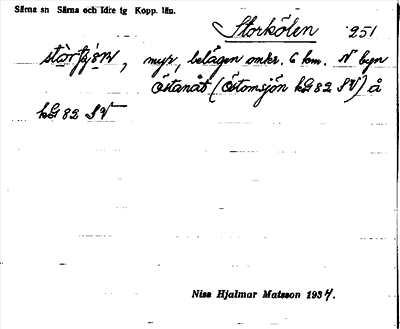 Särna sn Särna och Idre tg Kopp. län.
Storkölen 251
myr, belägen omkr. 6 km. N byn
Östanåt (Östomsjön kG 82 SV) å
kG 82 SV
Niss Hjalmar Matsson 1934.